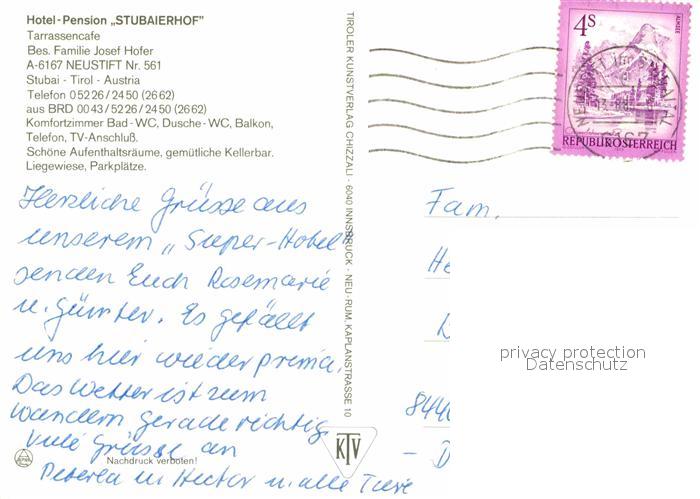 Hotel-Pension „STUBAIERHOF"
Tarrassencafe
Bes. Familie Josef Hofer
A-6167 NEUSTIFT Nr. 561
Stubai - Tirol - Austria
Telefon 0 52 26 / 24 50 (26 62)
aus BRD 00 43 / 52 26 / 24 50 (26 62)
Komfortzimmer Bad - WC, Dusche - WC, Balkon,
Telefon, TV-Anschluß.
Schöne Aufenthaltsräume, gemütliche Kellerbar.
Liegewiese, Parkplätze.
Herzliche Grüsse aus
unserem „Super-Hotel
senden Euch Rosemarie
u. Günter. Es gefällt
uns hier wieder prima.
Das Wetter ist zum
wandern gerade richtig
Viele Grüsse an
Peterla u. Hector u. alle Tiere
Nachdruck verboten!
TIROLER KUNSTVERLAG CHIZZALI · 6040 INNSBRUCK · NEU-RUM, KAPLANSTRASSE 10
KTV
4S
ALMSEE
REPUBLIK ÖSTERREICH
6167
Fam.
He
8440
- D
privacy protection
Datenschutz